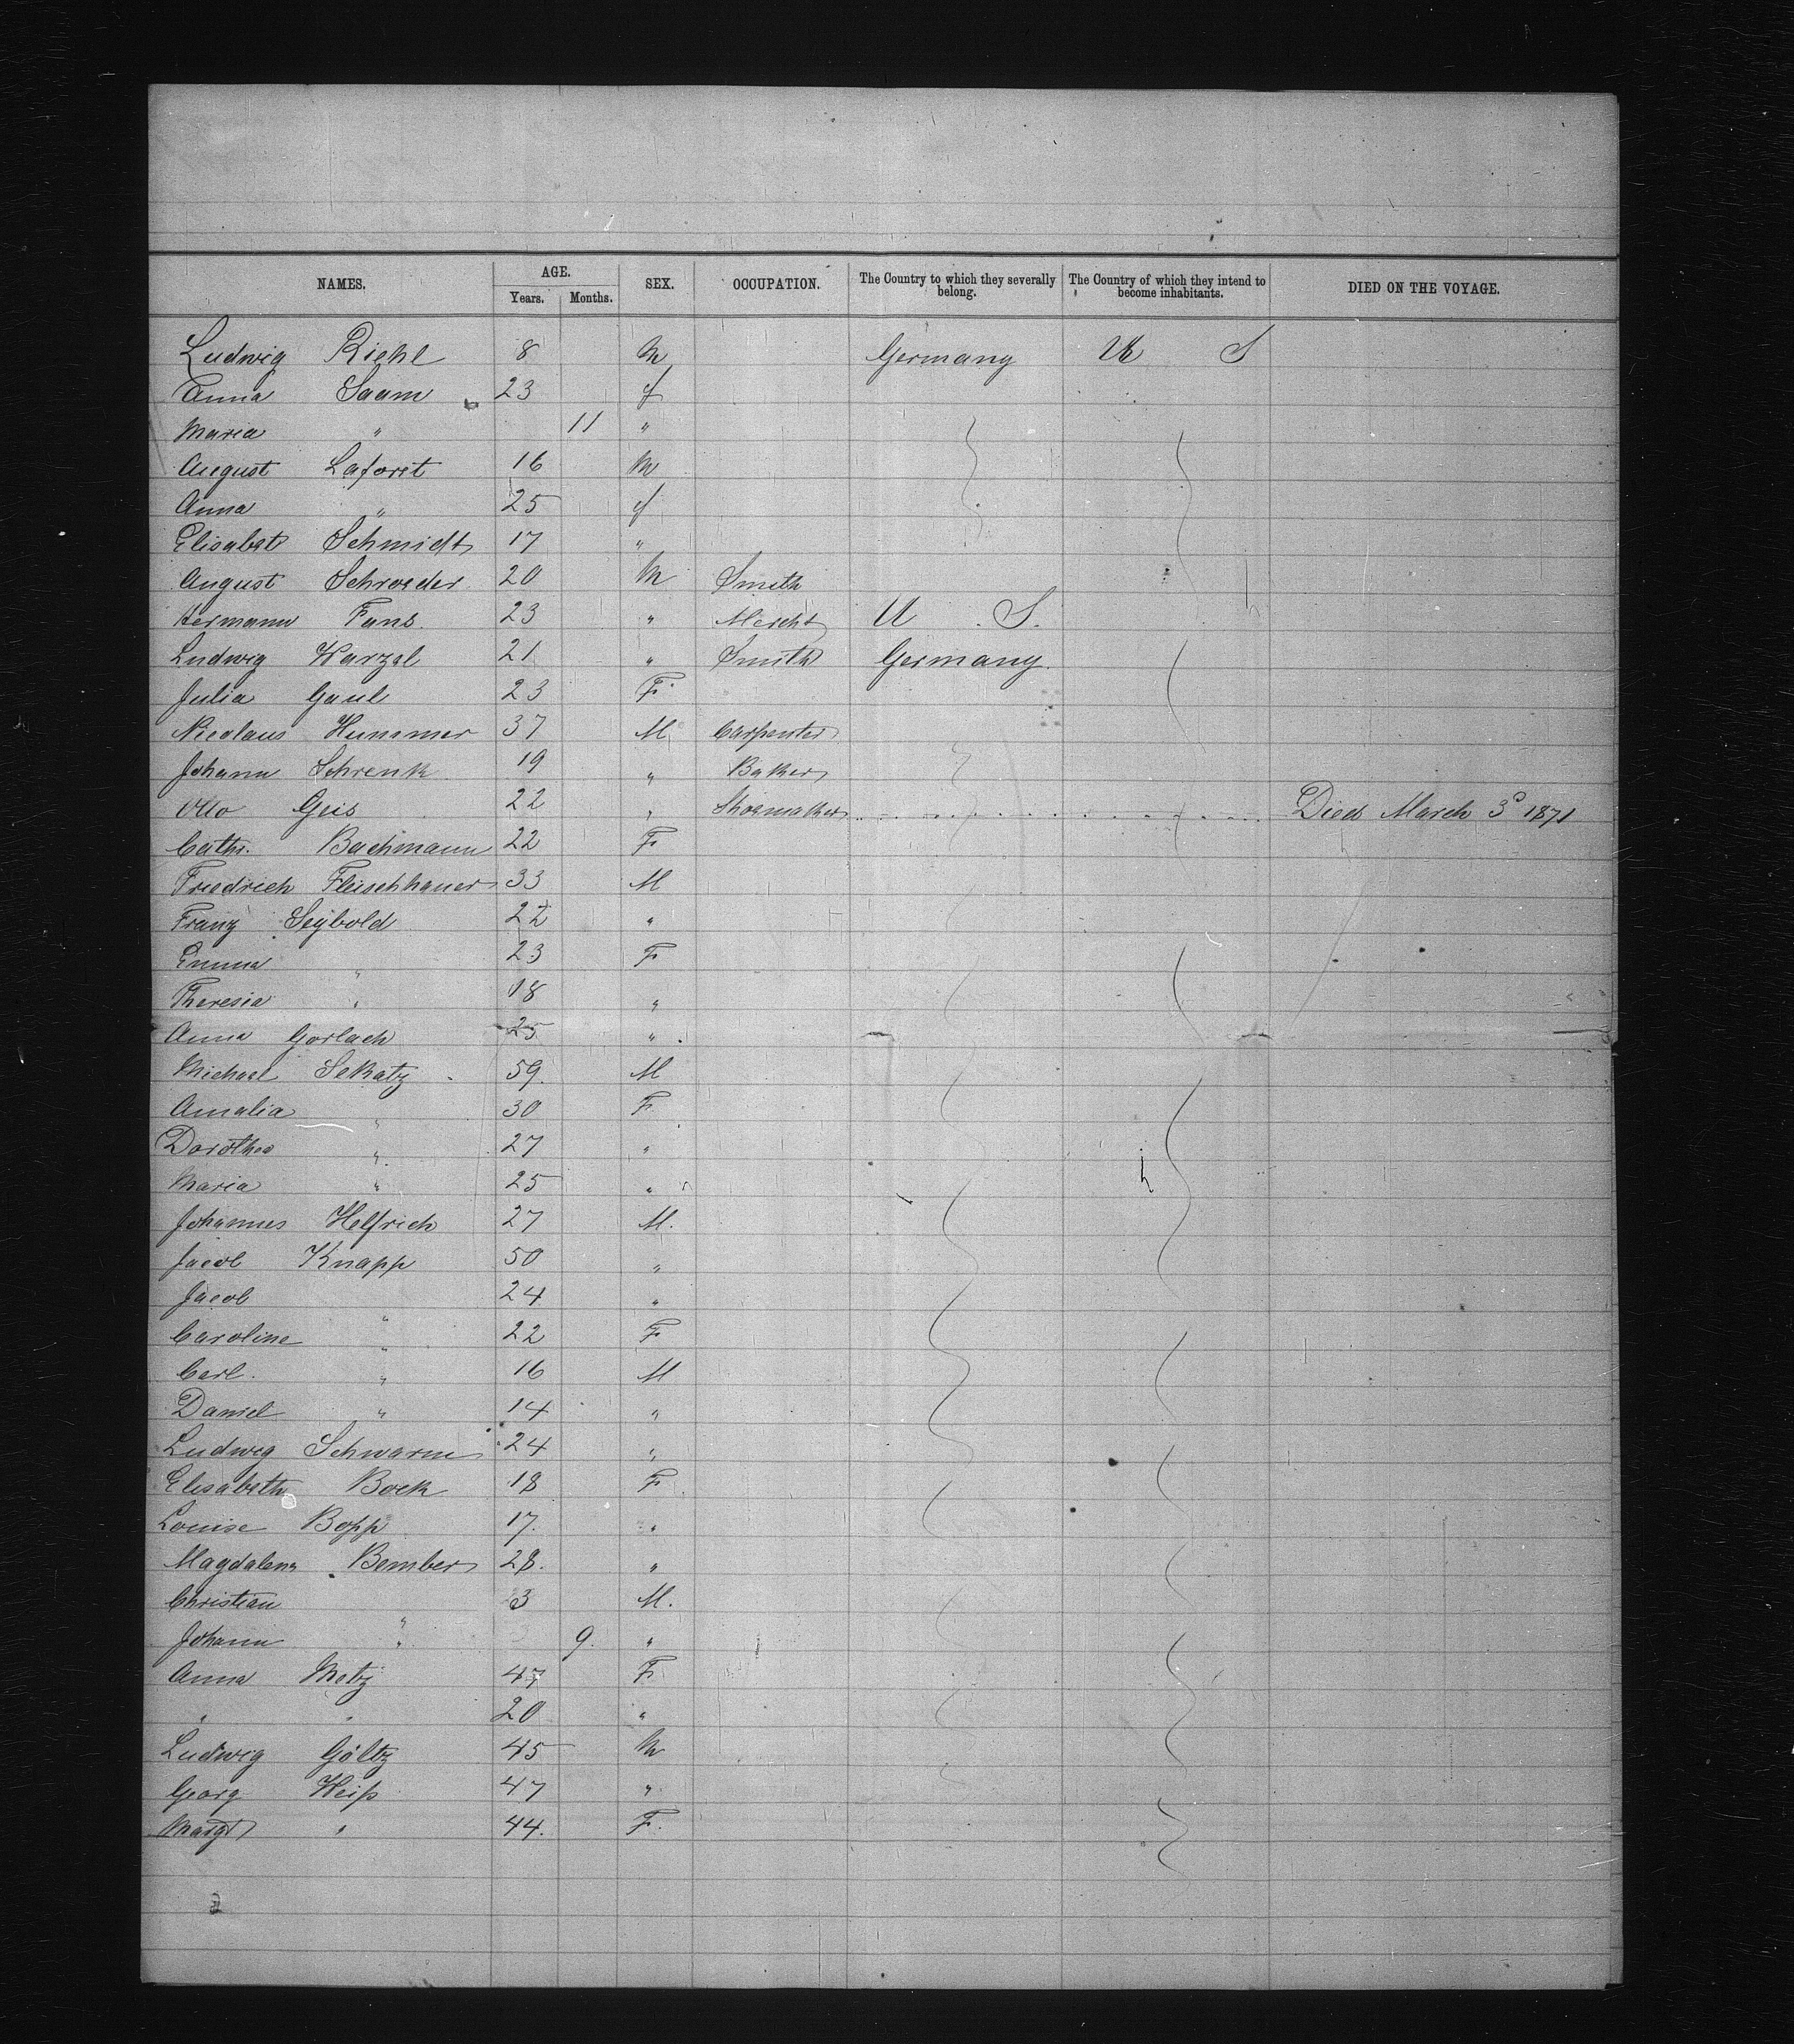 NAMES. AGE. Years. Months. SEX. OCCUPATION. The Country to which they severally belong. The Country of which they intend to become inhabitants. DIED ON THE VOYAGE.
Ludwig Riehl 8 M Germany U S
Anna Saam 23 f
Maria " 11 "
August Laforet 16 M
Anna " 25 f
Elisabet Schmidt 17 "
August Schroeder 20 M Smith
Hermann Fans 23 " Mercht U. S.
Ludwig Warzel 21 " Smith Germany
Julia Gaul 23 F
Nicolaus Hummer 37 M Carpenter
Johann Schrenk 19 " Baker
Otto Geis 22 " Shoemaker Died March 3d 1871
Cathr. Bachmann 22 F
Friedrich Fleischhauer 33 M
Franz Seybold 22 "
Emma " 23 F
Theresia " 18 "
Anna Gorlach 25 "
Michael Sekatz 59 M
Amalia " 30 F
Dorothea " 27 "
Maria " 25 "
Johannes Helfrich 27 M.
Jacob Knapp 50 "
Jacob " 24 "
Caroline " 22 F
Carl " 16 M
Daniel " 14 "
Ludwig Schwarm 24 "
Elisabeth Bock 18 F
Louise Bopp 17 "
Magdalena Bember 28 "
Christian " 3 M.
Johann " 9 "
Anna Metz 47 F
" " 20 "
Ludwig Göltz 45 M
Georg Heiß 47 "
Margt " 44. F.